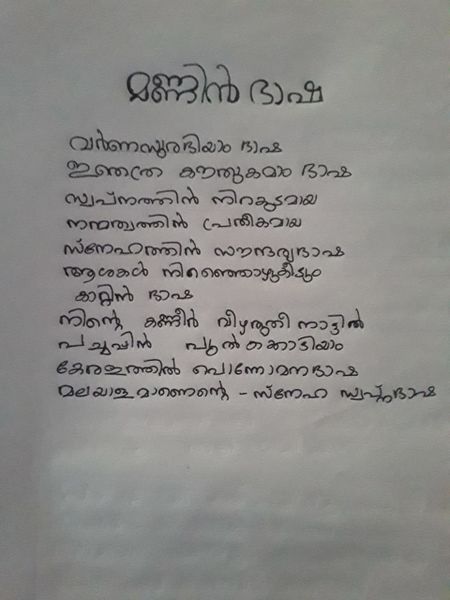 മണ്ണിൻ ഭാഷ
വർണസുരഭിയാം ഭാഷ
ഇതെത്ര കൗതുകമാം ഭാഷ
സ്വപ്നത്തിൻ നിറകുടമായ
നന്മത്വത്തിൻ പ്രതീകമായ
സ്നേഹത്തിൻ സൗന്ദര്യഭാഷ
ആശകൾ നിറഞ്ഞൊഴുകീടും
കാറ്റിൻ ഭാഷ
നിന്റെ കണ്ണീർ വീഴരുതീ നാട്ടിൽ
പച്ചപ്പിൻ പൂൽകൊട്ടിയാം
കേരളത്തിൽ പൊന്നോമനഭാഷ
മലയാളമാണെന്റെ - സ്നേഹ സ്വപ്നഭാഷ